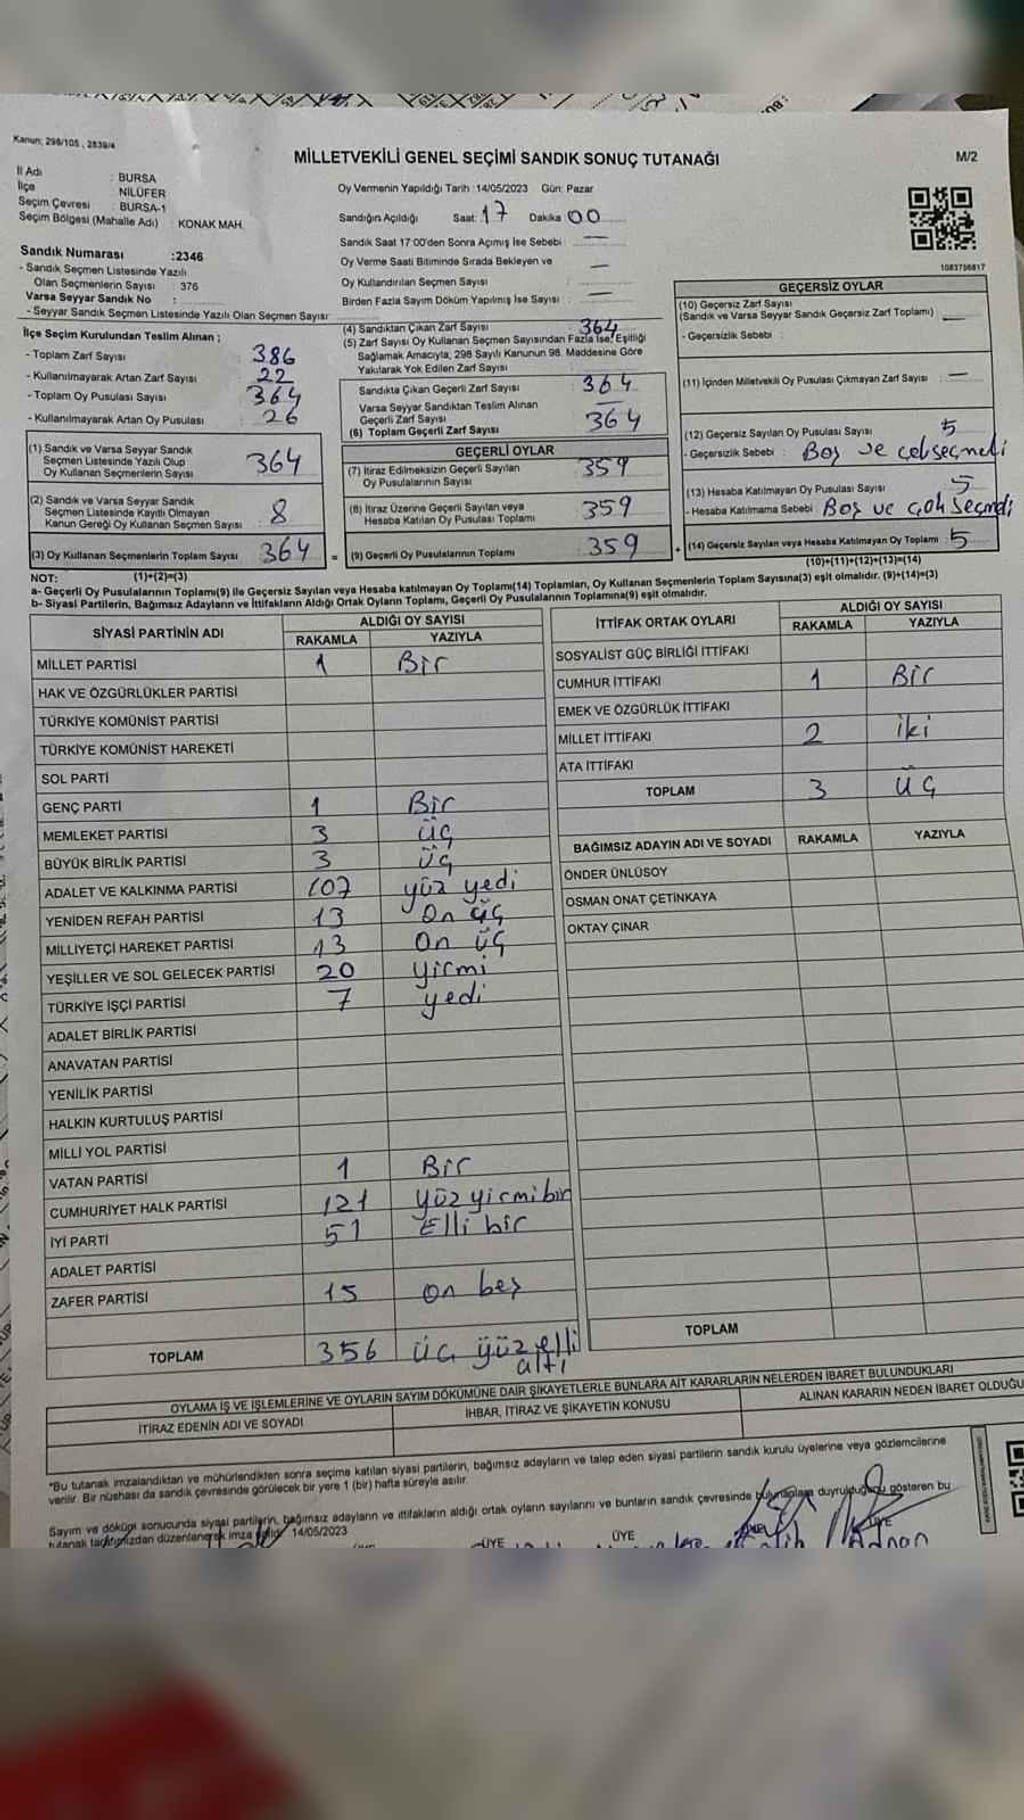 Kanun: 298/105 , 2839/4
MİLLETVEKİLİ GENEL SEÇİMİ SANDIK SONUÇ TUTANAĞI
M/2
İl Adı : BURSA
İlçe : NİLÜFER
Seçim Çevresi : BURSA-1
Seçim Bölgesi (Mahalle Adı) : KONAK MAH.
Oy Vermenin Yapıldığı Tarih :14/05/2023 Gün: Pazar
Sandığın Açıldığı Saat: 17 Dakika 00
Sandık Saat 17:00'den Sonra Açımış İse Sebebi : —
Oy Verme Saati Bitiminde Sırada Bekleyen ve
Oy Kullandırılan Seçmen Sayısı : —
Birden Fazla Sayım Döküm Yapılmış İse Sayısı : —
Sandık Numarası :2346
- Sandık Seçmen Listesinde Yazılı
Olan Seçmenlerin Sayısı : 376
Varsa Seyyar Sandık No :
- Seyyar Sandık Seçmen Listesinde Yazılı Olan Seçmen Sayısı:
1083756817
İlçe Seçim Kurulundan Teslim Alınan ;
- Toplam Zarf Sayısı : 386
- Kullanılmayarak Artan Zarf Sayısı : 22
- Toplam Oy Pusulası Sayısı : 364
- Kullanılmayarak Artan Oy Pusulası : 26
(1) Sandık ve Varsa Seyyar Sandık
Seçmen Listesinde Yazılı Olup
Oy Kullanan Seçmenlerin Sayısı 364
(2) Sandık ve Varsa Seyyar Sandık
Seçmen Listesinde Kayıtlı Olmayan
Kanun Gereği Oy Kullanan Seçmen Sayısı 8
(3) Oy Kullanan Seçmenlerin Toplam Sayısı 364 =
(1)+(2)=(3)
(4) Sandıktan Çıkan Zarf Sayısı 364
(5) Zarf Sayısı Oy Kullanan Seçmen Sayısından Fazla İse, Eşitliği
Sağlamak Amacıyla, 298 Sayılı Kanunun 98. Maddesine Göre
Yakılarak Yok Edilen Zarf Sayısı
Sandıkta Çıkan Geçerli Zarf Sayısı 364
Varsa Seyyar Sandıktan Teslim Alınan
Geçerli Zarf Sayısı —
(6) Toplam Geçerli Zarf Sayısı 364
GEÇERLİ OYLAR
(7) İtiraz Edilmeksizin Geçerli Sayılan
Oy Pusulalarının Sayısı 359
(8) İtiraz Üzerine Geçerli Sayılan veya
Hesaba Katılan Oy Pusulası Toplamı 359
(9) Geçerli Oy Pusulalarının Toplamı 359 +
GEÇERSİZ OYLAR
(10) Geçersiz Zarf Sayısı
(Sandık ve Varsa Seyyar Sandık Geçersiz Zarf Toplamı) : —
- Geçersizlik Sebebi :
(11) İçinden Milletvekili Oy Pusulası Çıkmayan Zarf Sayısı : —
(12) Geçersiz Sayılan Oy Pusulası Sayısı : 5
- Geçersizlik Sebebi : Boş ve çok seçmeli
(13) Hesaba Katılmayan Oy Pusulası Sayısı : 5
- Hesaba Katılmama Sebebi : Boş ve çok seçmeli
(14) Geçersiz Sayılan veya Hesaba Katılmayan Oy Toplamı : 5
(10)+(11)+(12)+(13)=(14)
NOT:
a- Geçerli Oy Pusulalarının Toplamı(9) ile Geçersiz Sayılan veya Hesaba katılmayan Oy Toplamı(14) Toplamları, Oy Kullanan Seçmenlerin Toplam Sayısına(3) eşit olmalıdır. (9)+(14)=(3)
b- Siyasi Partilerin, Bağımsız Adayların ve İttifakların Aldığı Ortak Oyların Toplamı, Geçerli Oy Pusulalarının Toplamına(9) eşit olmalıdır.
SİYASİ PARTİNİN ADI ALDIĞI OY SAYISI
RAKAMLA YAZIYLA
MİLLET PARTİSİ 1 Bir
HAK VE ÖZGÜRLÜKLER PARTİSİ
TÜRKİYE KOMÜNİST PARTİSİ
TÜRKİYE KOMÜNİST HAREKETİ
SOL PARTİ
GENÇ PARTİ 1 Bir
MEMLEKET PARTİSİ 3 üç
BÜYÜK BİRLİK PARTİSİ 3 üç
ADALET VE KALKINMA PARTİSİ 107 yüz yedi
YENİDEN REFAH PARTİSİ 13 On üç
MİLLİYETÇİ HAREKET PARTİSİ 13 On üç
YEŞİLLER VE SOL GELECEK PARTİSİ 20 yirmi
TÜRKİYE İŞÇİ PARTİSİ 7 yedi
ADALET BİRLİK PARTİSİ
ANAVATAN PARTİSİ
YENİLİK PARTİSİ
HALKIN KURTULUŞ PARTİSİ
MİLLİ YOL PARTİSİ
VATAN PARTİSİ 1 Bir
CUMHURİYET HALK PARTİSİ 121 yüz yirmi bir
İYİ PARTİ 51 Elli bir
ADALET PARTİSİ
ZAFER PARTİSİ 15 On beş
TOPLAM 356 üç yüz elli
altı
İTTİFAK ORTAK OYLARI ALDIĞI OY SAYISI
RAKAMLA YAZIYLA
SOSYALİST GÜÇ BİRLİĞİ İTTİFAKI
CUMHUR İTTİFAKI 1 Bir
EMEK VE ÖZGÜRLÜK İTTİFAKI
MİLLET İTTİFAKI 2 iki
ATA İTTİFAKI
TOPLAM 3 üç
BAĞIMSIZ ADAYIN ADI VE SOYADI RAKAMLA YAZIYLA
ÖNDER ÜNLÜSOY
OSMAN ONAT ÇETİNKAYA
OKTAY ÇINAR
TOPLAM
OYLAMA İŞ VE İŞLEMLERİNE VE OYLARIN SAYIM DÖKÜMÜNE DAİR ŞİKAYETLERLE BUNLARA AİT KARARLARIN NELERDEN İBARET BULUNDUKLARI
İTİRAZ EDENİN ADI VE SOYADI İHBAR, İTİRAZ VE ŞİKAYETİN KONUSU ALINAN KARARIN NEDEN İBARET OLDUĞU
*Bu tutanak imzalandıktan ve mühürlendikten sonra seçime katılan siyasi partilerin, bağımsız adayların ve talep eden siyasi partilerin sandık kurulu üyelerine veya gözlemcilerine
verilir. Bir nüshası da sandık çevresinde görülecek bir yere 1 (bir) hafta süreyle asılır.
Sayım ve dökün sonucunda siyasi partilerin, bağımsız adayların ve ittifakların aldığı ortak oyların sayılarını ve bunların sandık çevresinde duyrulduğunu gösteren bu
tutanak tarafımızdan düzenlenerek imza 14/05/2023
ÜYE ÜYE ÜYE
Adnan